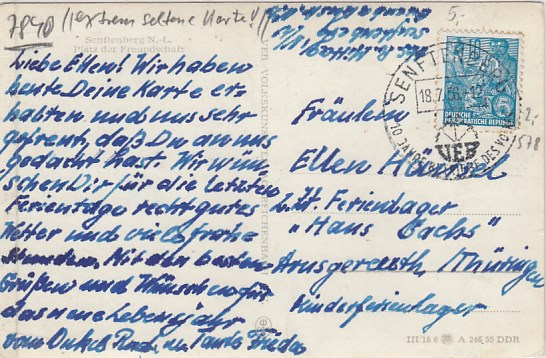 7840 // extrem seltene Karte! //
5,-
Senftenberg N.-L.
Platz der Freundschaft
Liebe Ellen! Wir haben
heute Deine Karte er-
halten und uns sehr
gefreut, daß Du an uns
gedacht hast. Wir wün-
schen Dir für die letzten
Ferientage recht gutes
Wetter und viele frohe
Stunden. Mit den besten
Grüßen und Wünschen für
das neue Lebensjahr
vom Onkel u. Tante Frieda
SENFTENBERG
18.7.56
DEUTSCHE
DEMOKRATISCHE REPUBLIK
5
VEB
Fräulein
Ellen
z. Zt. Ferienlager
"Hans Sachs"
/Thüringen
Kinderferienlager
III 18 6 A 246 55 DDR